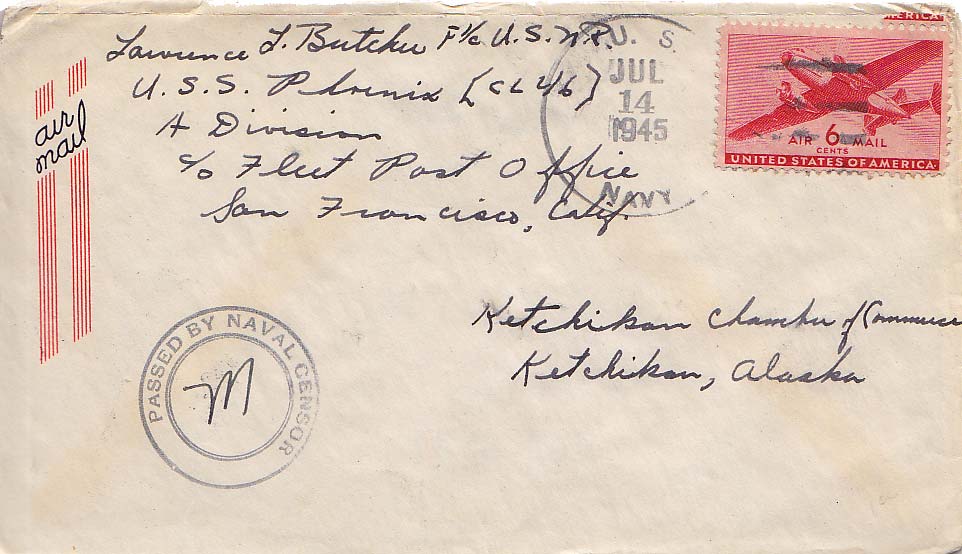 Lawrence L. Butcher F1/c U.S.N.R.
U.S.S. Phoenix [CL46]
A Division
c/o Fleet Post Office
San Francisco, Calif.
air
mail
U. S.
JUL
14
1945
NAVY
ERICA
AIR 6 MAIL
CENTS
UNITED STATES OF AMERICA
Ketchikan Chamber of Commerce
Ketchikan, Alaska
PASSED BY NAVAL CENSOR
M